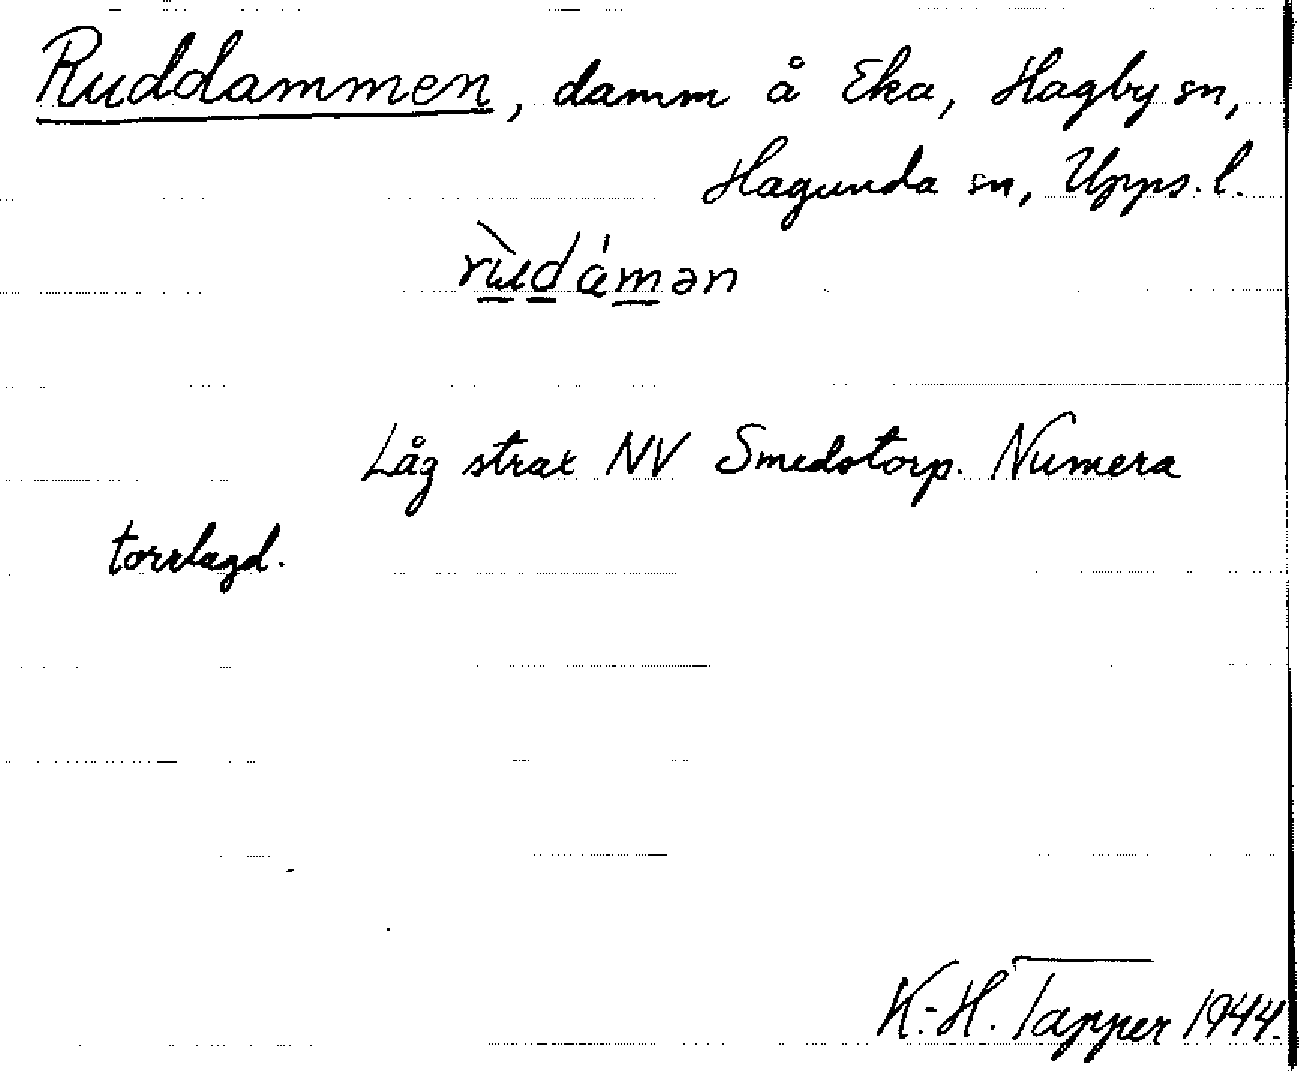 Ruddammen, damm å Eka, Hagby sn,
Hagunda sn, Upps. l.
rùdámən
Låg strax NV Smedstorp. Numera
torrlagd.
K.-H. Tapper 1944.